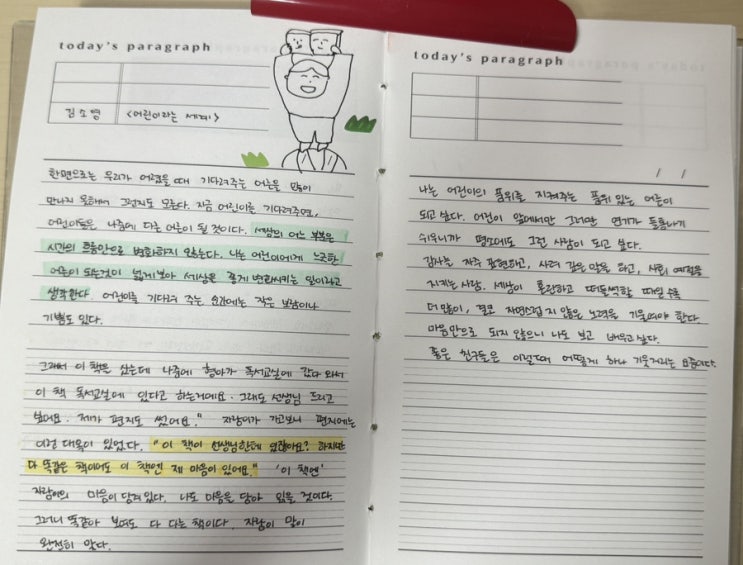 today's paragraph
김소영 <어린이라는 세계>
한편으로는 우리가 어렸을 때 기다려주는 어른을 많이
만나지 못해서 그런지도 모른다. 지금 어린이를 기다려주면,
어린이들은 나중에 다른 어른이 될 것이다. 세상의 어느 부분은
시간의 흐름만으로 변화하지 않는다. 나는 어린이에게 느긋한
어른이 되는것이 넓게보아 세상을 좋게 변화시키는 일이라고
생각한다. 어린이를 기다려 주는 순간에는 작은 보람이나
기쁨도 있다.
그래서 이 책을 샀는데 나중에 형아가 독서교실에 갔다 와서
이 책 독서교실에 있다고 하는거예요. 그래도 선생님 드리고
싶어요. 제가 편지도 썼어요." 자람이가 가고보니 편지에는
이런 대목이 있었다. "이 책이 선생님한테 있잖아요? 하지만
다 똑같은 책이어도 이 책엔 제 마음이 있어요." '이 책엔'
자람이의 마음이 담겨있다. 나도 마음을 담아 읽을 것이다.
그러니 똑같아 보여도 다 다른 책이다. 자람이 말이
완전히 맞다.
today's paragraph
/ /
나는 어린이의 품위를 지켜주는 품위 있는 어른이
되고 싶다. 어린이 앞에서만 그러면 연기가 들통나기
쉬우니까 평소에도 그런 사람이 되고 싶다.
감사를 자주 표현하고, 사려 깊은 말을 하고, 사회 예절을
지키는 사람. 세상이 혼란하고 떠들썩할 때일 수록
더 많이, 결코 자연스럽지 않은 노력을 기울여야 한다.
마음만으로 되지 않으니 나도 보고 배우고 싶다.
좋은 친구들은 이럴때 어떻게 하나 기웃거리는 요즘이다.